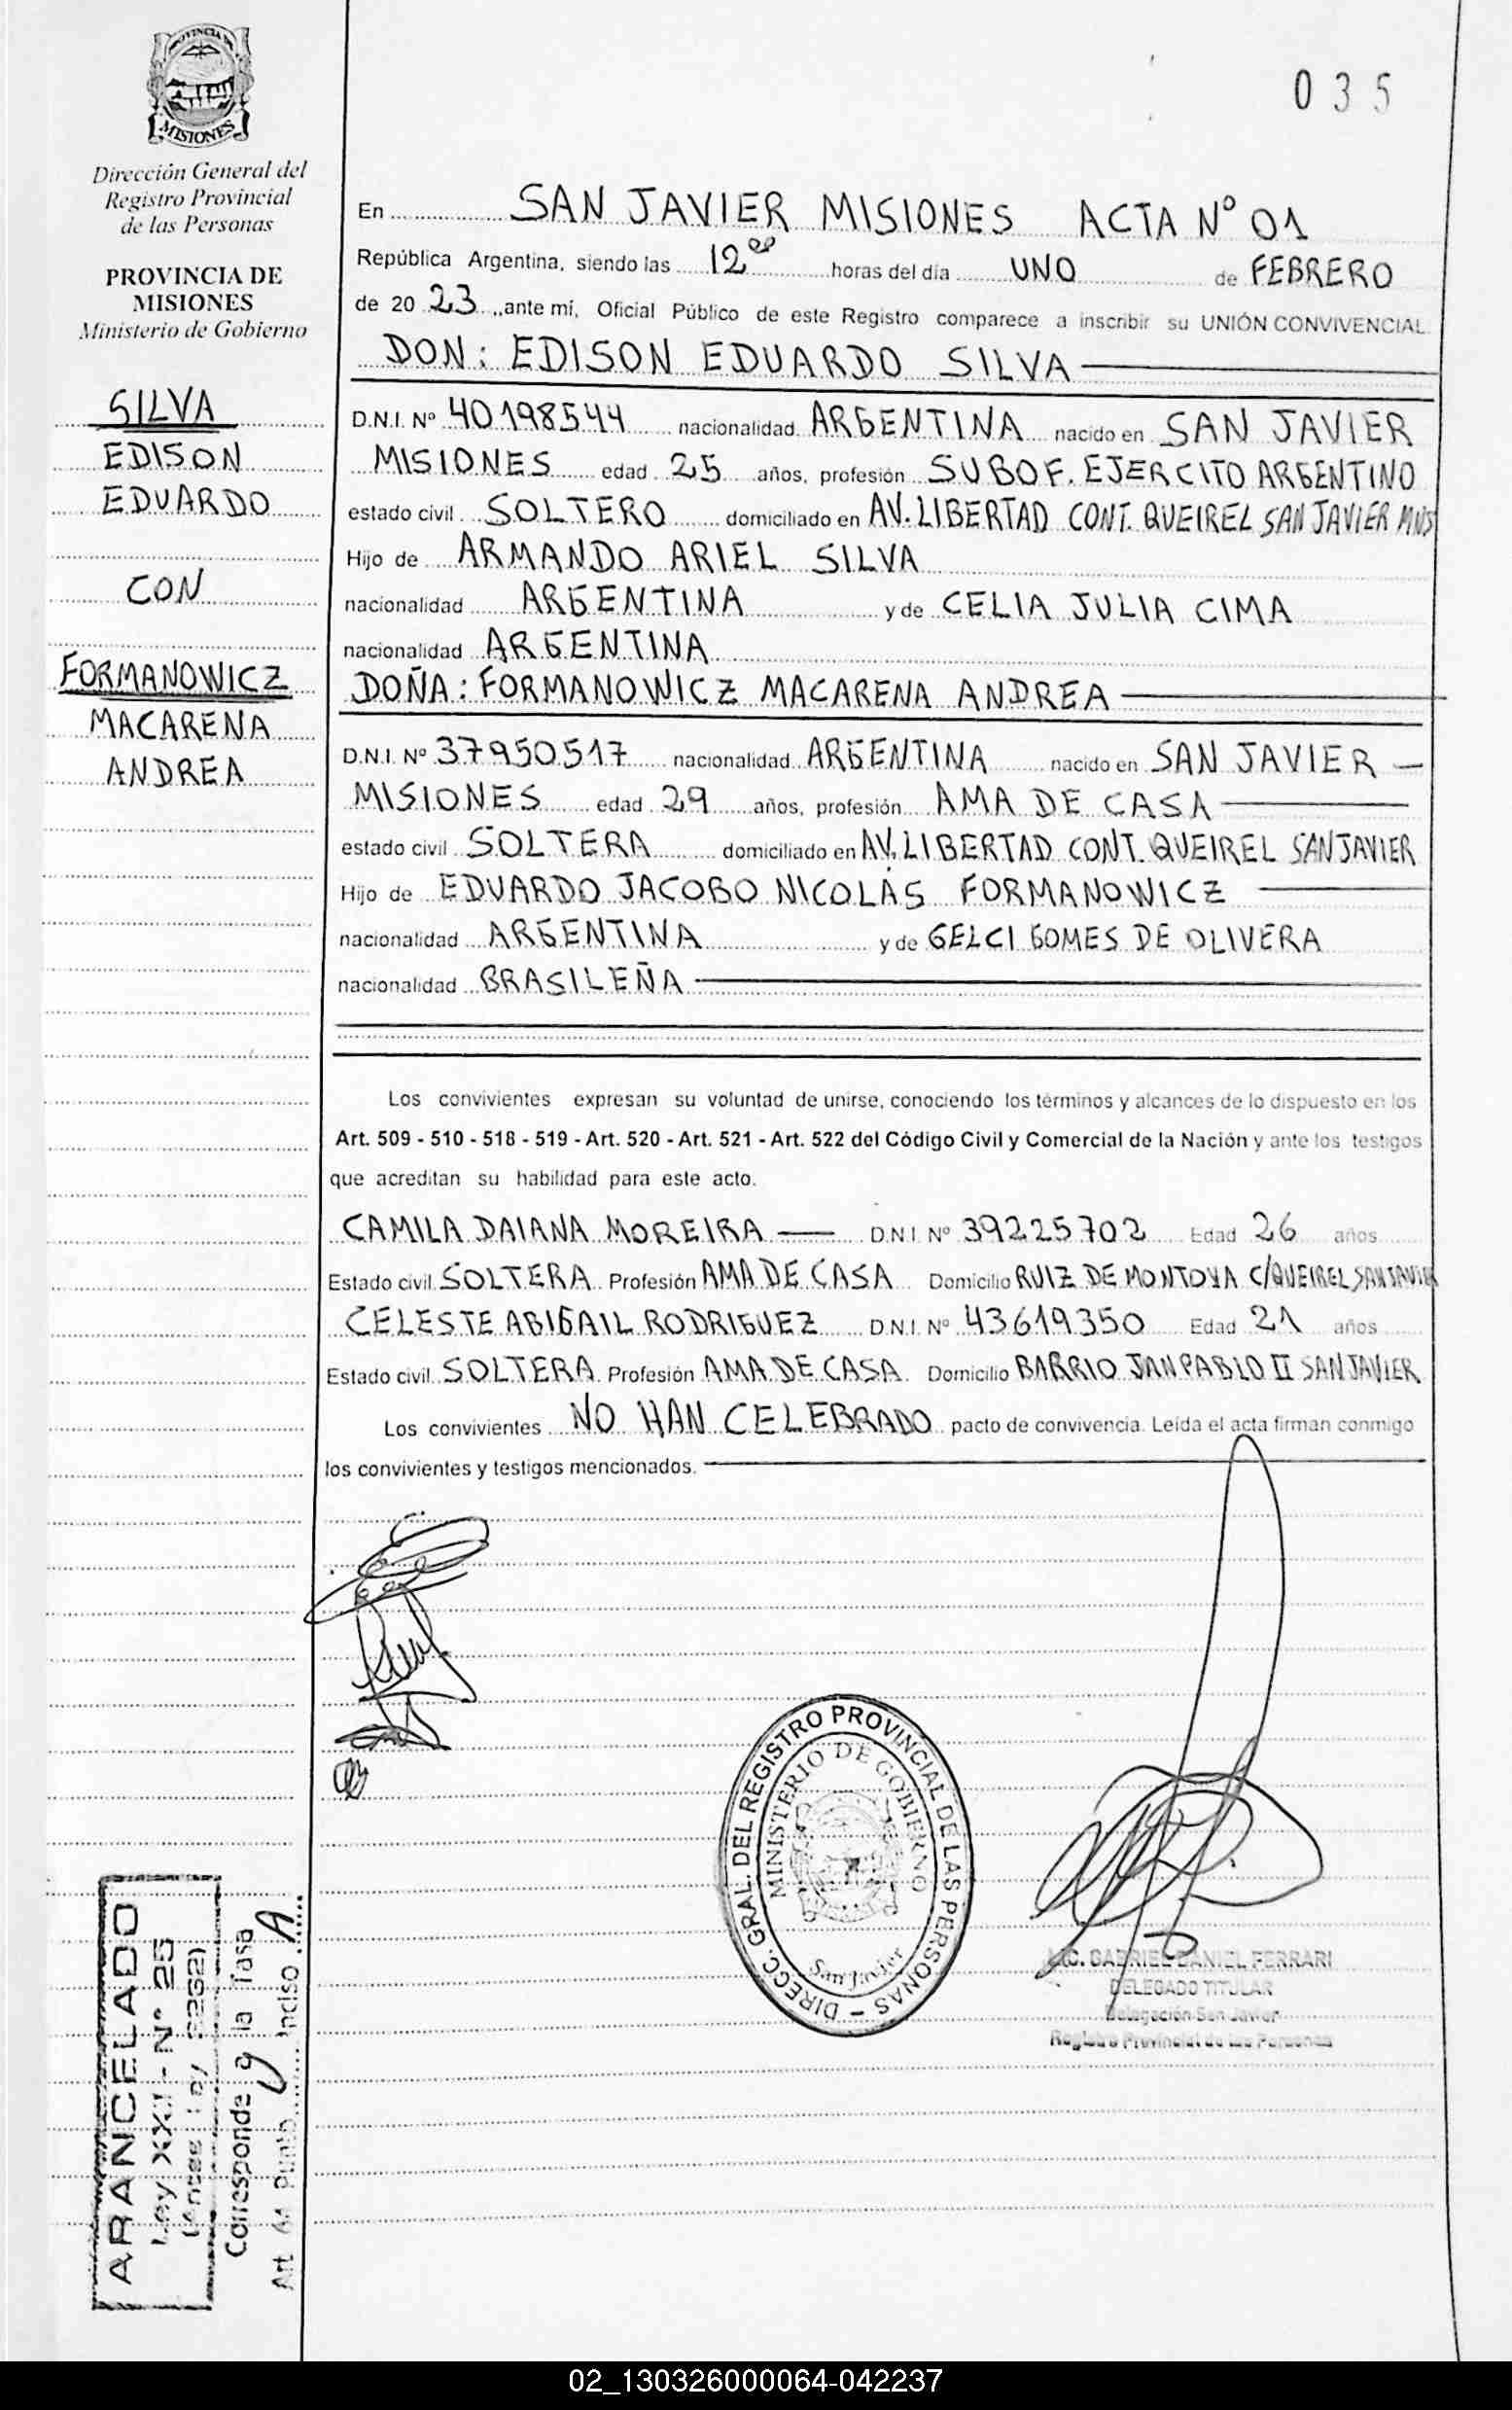 PROVINCIA DE
MISIONES
Dirección General del
Registro Provincial
de las Personas
PROVINCIA DE
MISIONES
Ministerio de Gobierno
SILVA
EDISON
EDUARDO
CON
FORMANOWICZ
MACARENA
ANDREA
035
En SAN JAVIER MISIONES ACTA N° 01
República Argentina, siendo las 12 horas del día UNO de FEBRERO
de 20 23 ,ante mí, Oficial Público de este Registro comparece a inscribir su UNIÓN CONVIVENCIAL
DON: EDISON EDUARDO SILVA
D.N.I. Nº 40198544 nacionalidad ARGENTINA nacido en SAN JAVIER
MISIONES edad 25 años, profesión SUBOF. EJERCITO ARGENTINO
estado civil SOLTERO domiciliado en AV. LIBERTAD CONT. QUEIREL SAN JAVIER MNS
Hijo de ARMANDO ARIEL SILVA
nacionalidad ARGENTINA y de CELIA JULIA CIMA
nacionalidad ARGENTINA
DOÑA: FORMANOWICZ MACARENA ANDREA
D.N.I. Nº 37950517 nacionalidad ARGENTINA nacido en SAN JAVIER
MISIONES edad 29 años, profesión AMA DE CASA
estado civil SOLTERA domiciliado en AV. LIBERTAD CONT. QUEIREL SAN JAVIER
Hijo de EDUARDO JACOBO NICOLÁS FORMANOWICZ
nacionalidad ARGENTINA y de GELCI GOMES DE OLIVERA
nacionalidad BRASILEÑA
Los convivientes expresan su voluntad de unirse, conociendo los términos y alcances de lo dispuesto en los
Art. 509 - 510 - 518 - 519 - Art. 520 - Art. 521 - Art. 522 del Código Civil y Comercial de la Nación y ante los testigos
que acreditan su habilidad para este acto.
CAMILA DAIANA MOREIRA D.N.I. Nº 39225702 Edad 26 años
Estado civil SOLTERA Profesión AMA DE CASA Domicilio RUIZ DE MONTOYA C/QUEIREL SAN JAVIER
CELESTE ABIGAIL RODRIGUEZ D.N.I. Nº 43619350 Edad 21 años
Estado civil SOLTERA Profesión AMA DE CASA Domicilio BARRIO JAN PABLO II SAN JAVIER
Los convivientes NO HAN CELEBRADO pacto de convivencia. Leída el acta firman conmigo
los convivientes y testigos mencionados.
DIRECC. GRAL. DEL REGISTRO PROVINCIAL DE LAS PERSONAS -
MINISTERIO DE GOBIERNO
San Javier
LIC. GABRIEL DANIEL FERRARI
DELEGADO TITULAR
Delegación San Javier
Registro Provincial de las Personas
ARANCELADO
Ley XXII - Nº 25
(Antes Ley 2262)
Corresponde a la Tasa
Art. Punto Inciso A
02_130326000064-042237